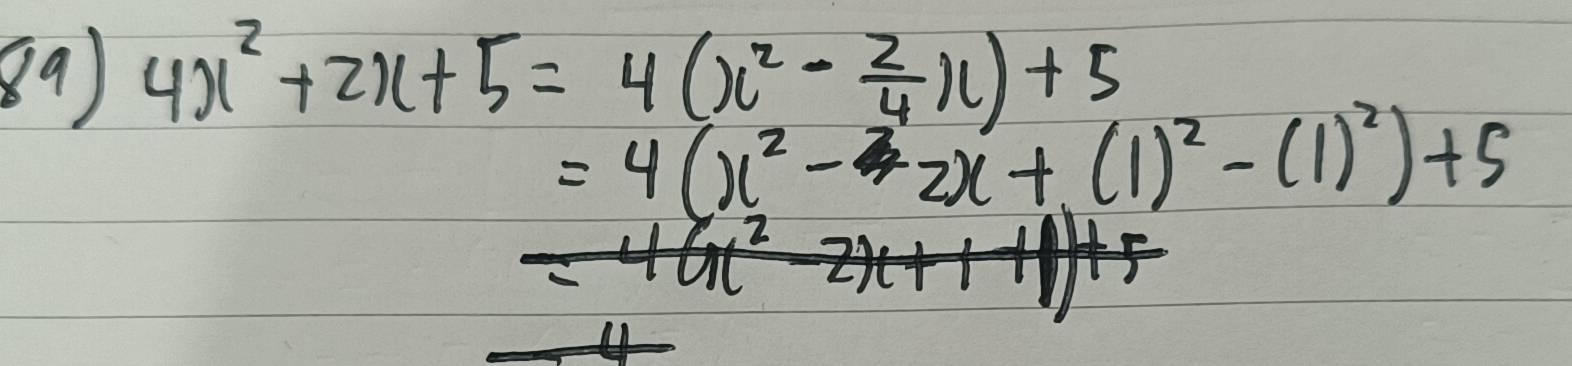 89) 4x² + 2x + 5 = 4(x² - 2/4 x) + 5
= 4(x² - 2x + (1)² - (1)²) + 5
= 4(x² - 2x + 1 + 1) + 5
= 4